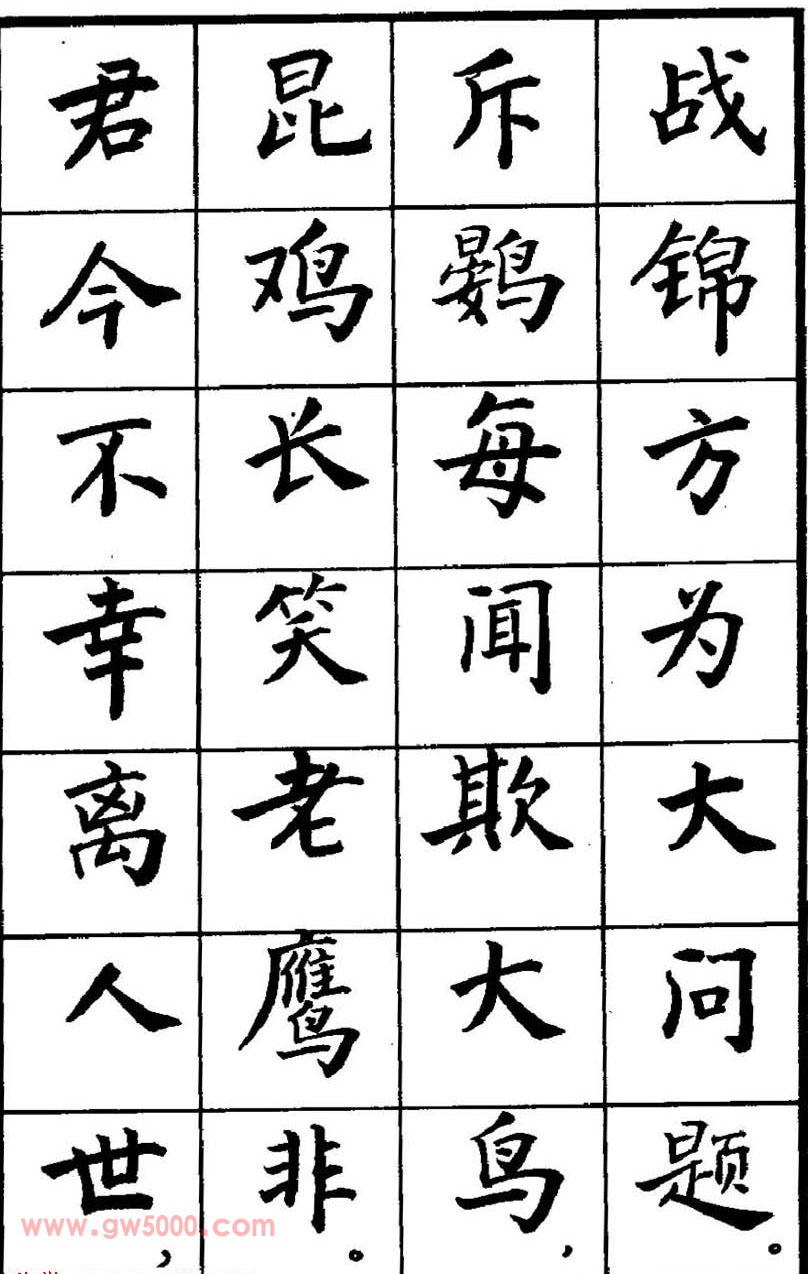 战锦方为大问题。
斥鷃每闻欺大鸟，
昆鸡长笑老鹰非。
君今不幸离人世，
www.gw5000.com